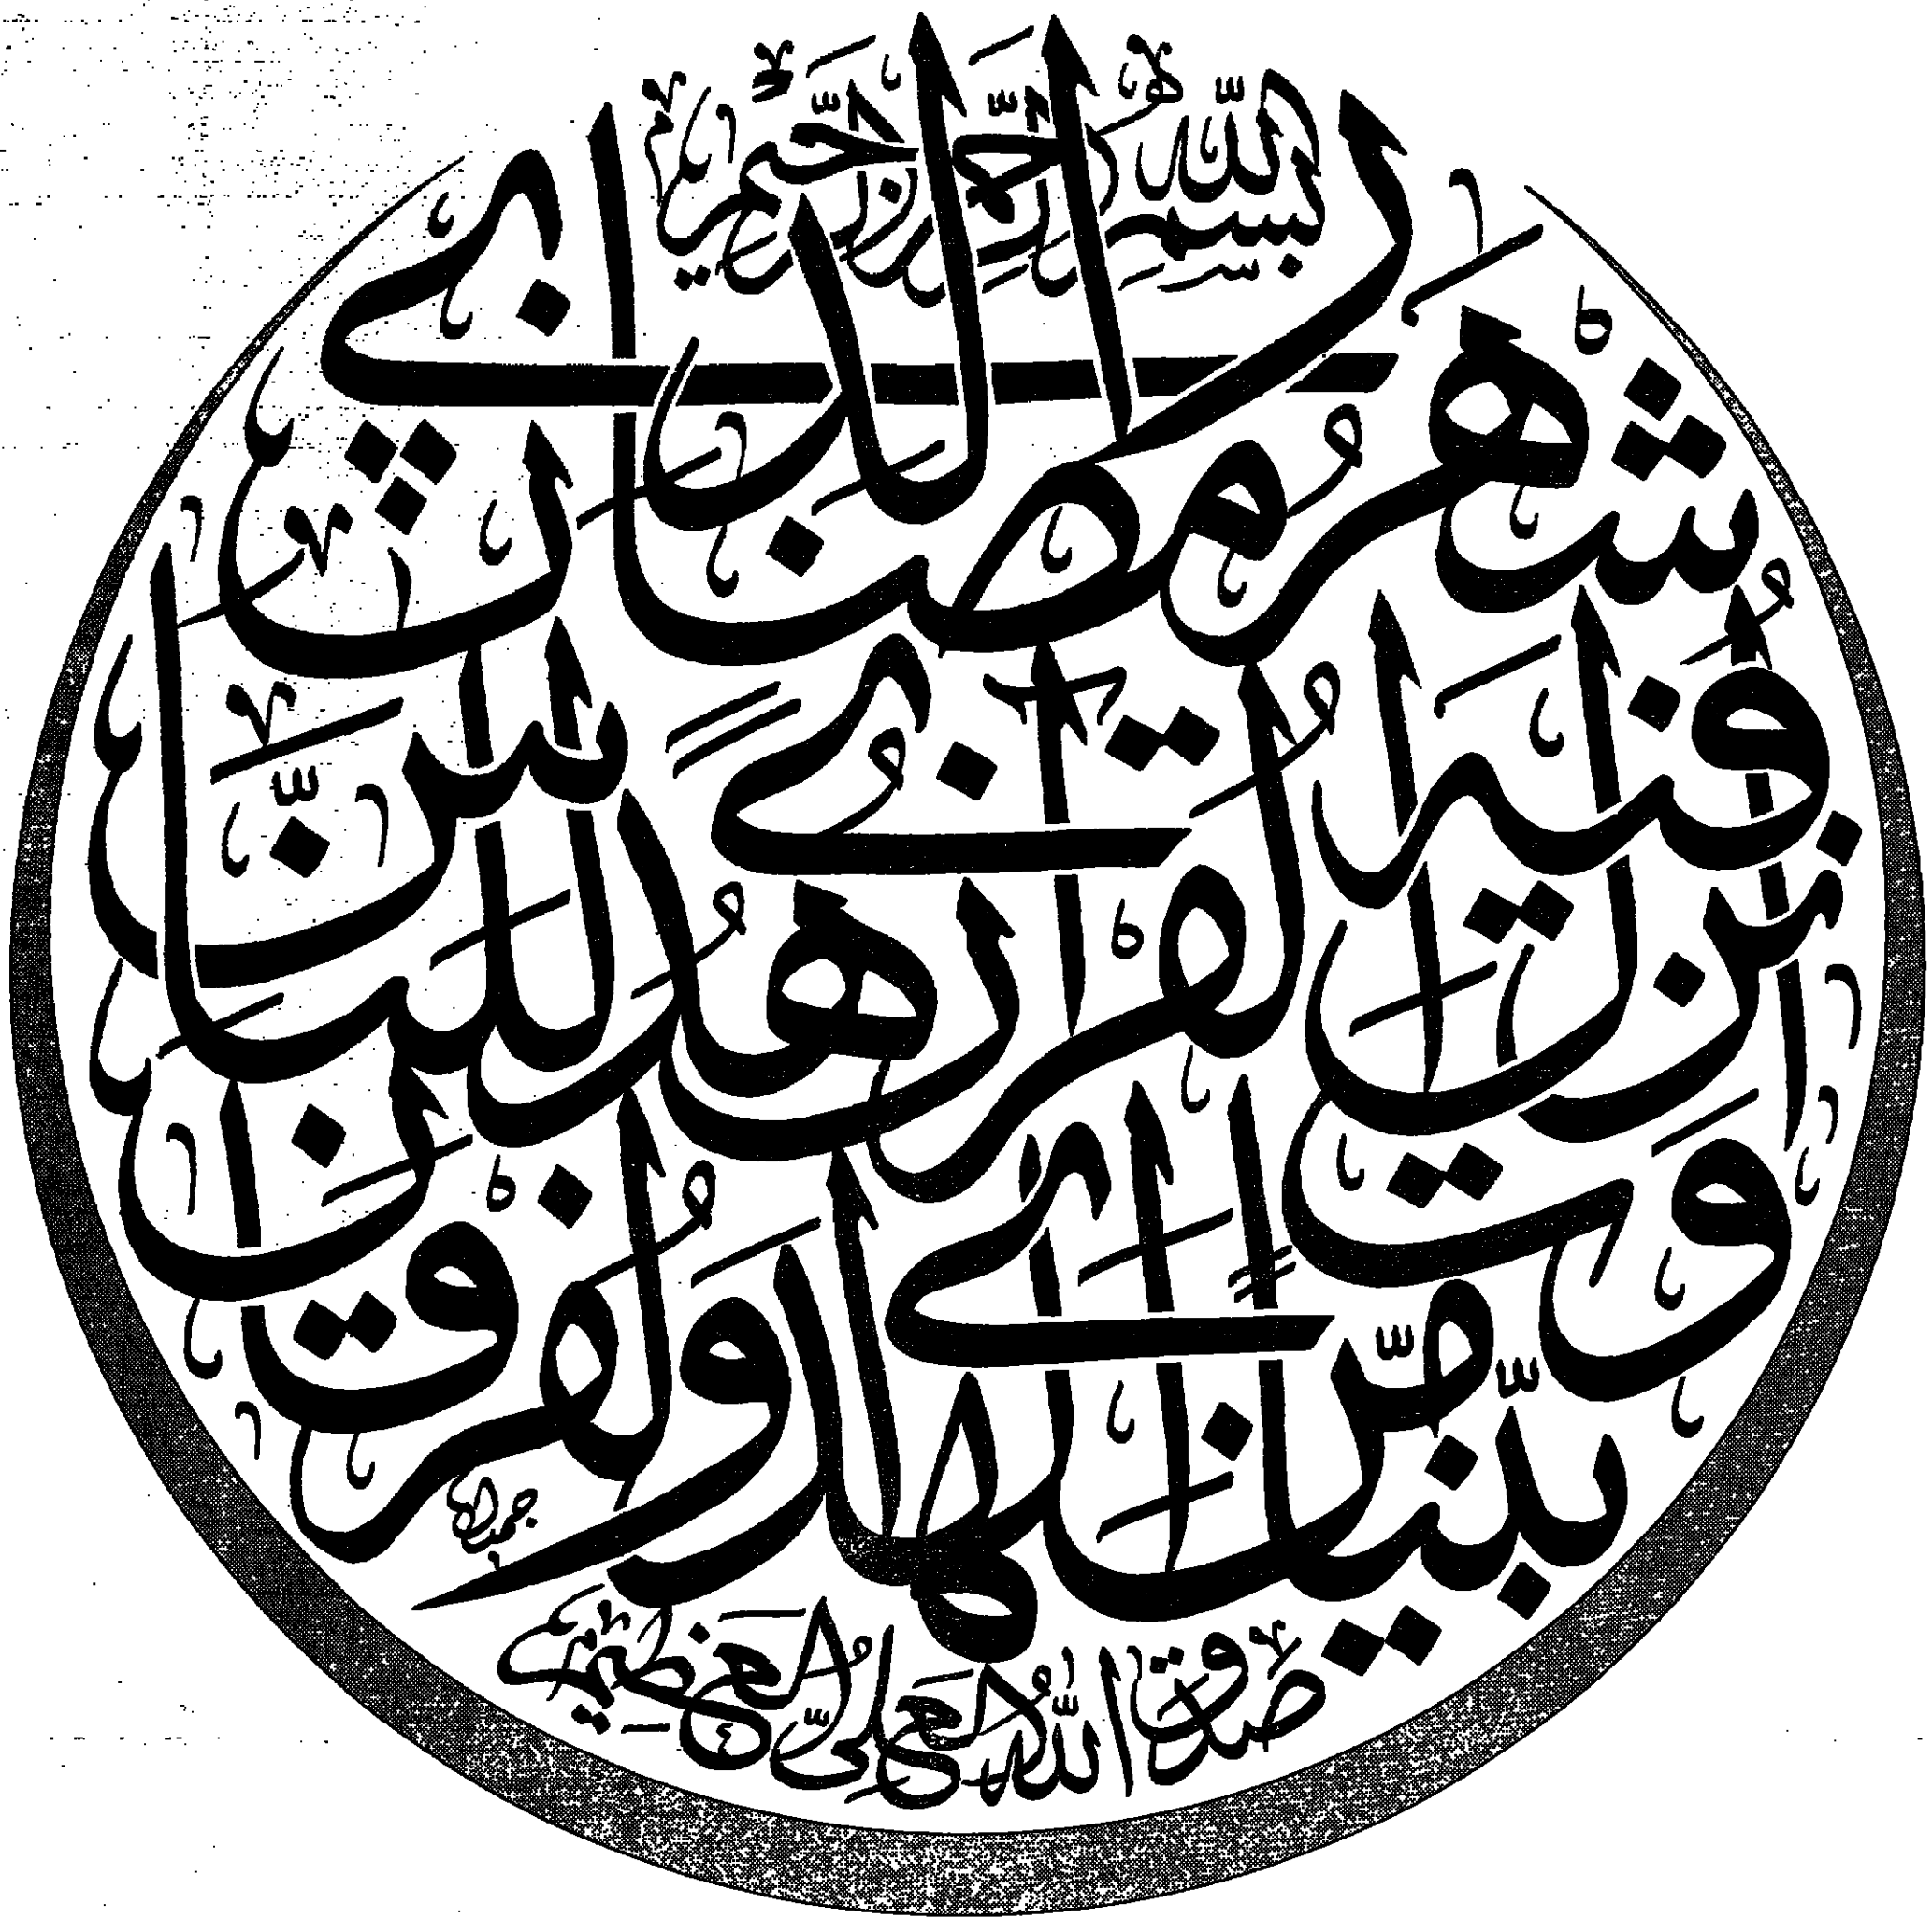 بسم الله الرحمن الرحيم
شهر رمضان الذي
أنزل فيه القرآن هدى للناس
وبينات من الهدى والفرقان
صدق الله العلي العظيم